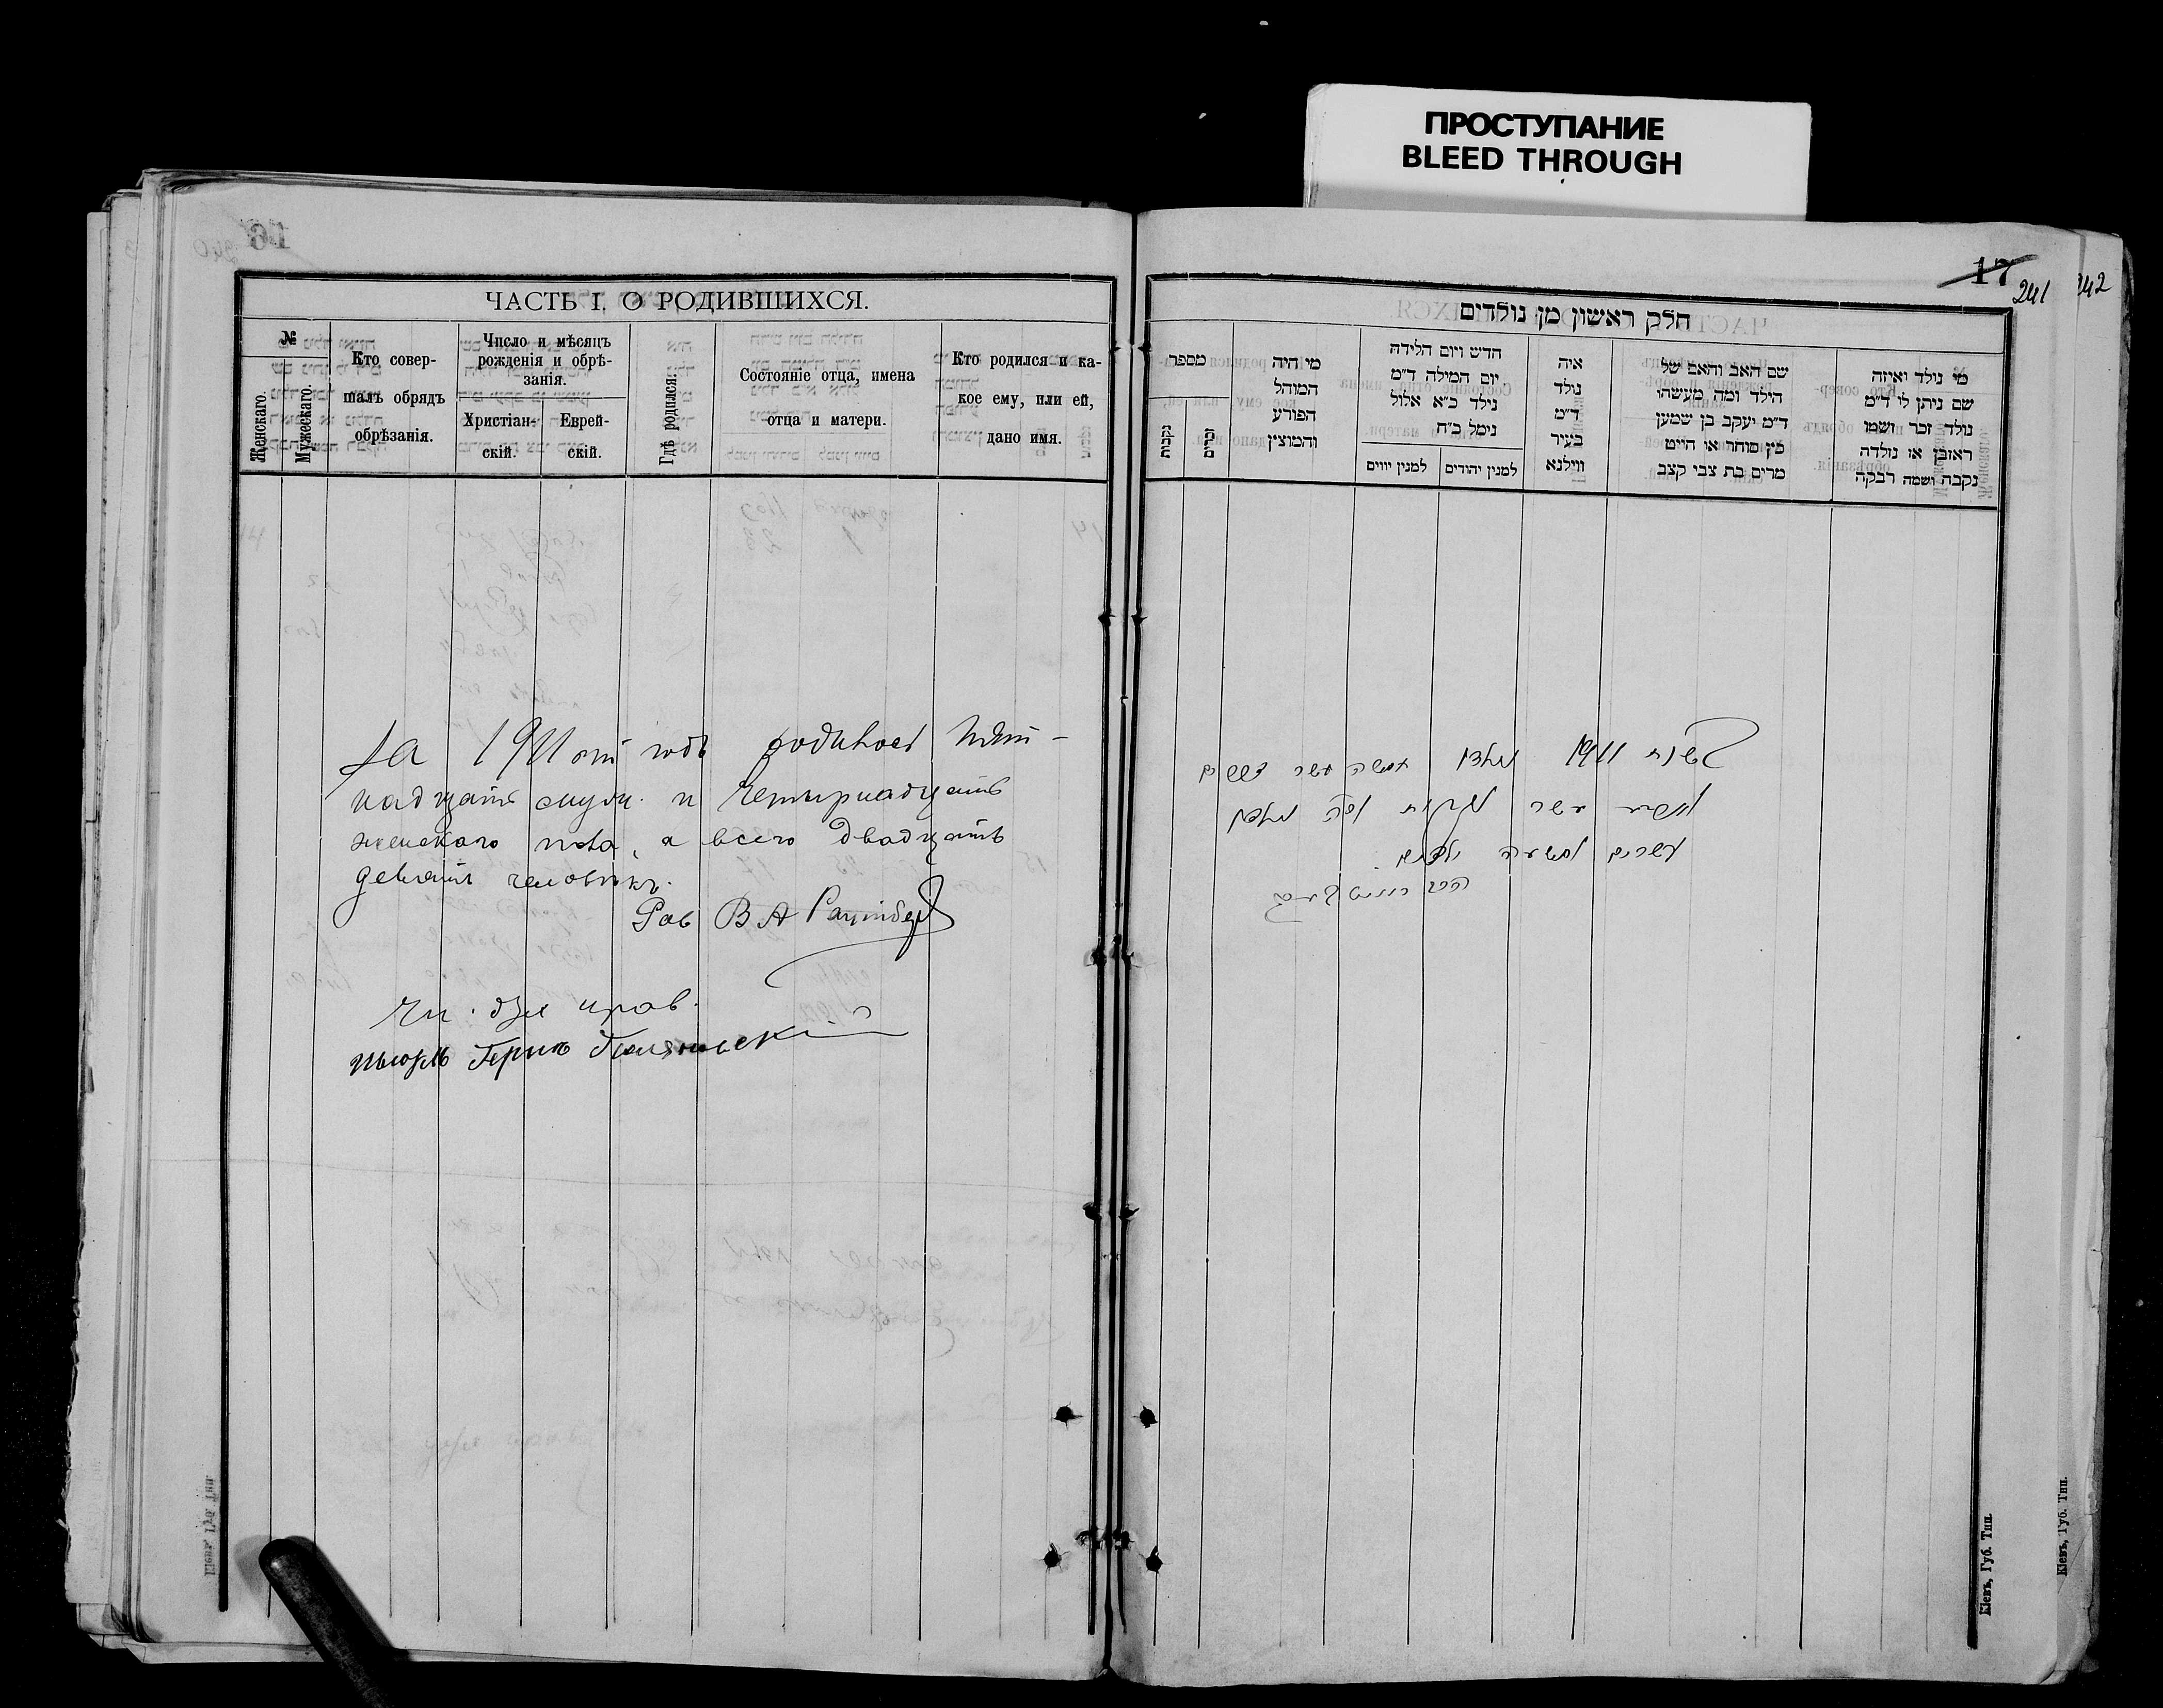 ПРОСТУПАНИЕ
BLEED THROUGH
16
ЧАСТЬ I. О РОДИВШИХСЯ.
№
Женскаго.
Мужескаго.
Кто совер-
шалъ обрядъ
обрѣзанія.
Число и мѣсяцъ
рожденія и обрѣ-
занія.
Христіан-
скій.
Еврей-
скій.
Гдѣ родился.
Состояніе отца, имена
отца и матери.
Кто родился и ка-
кое ему, или ей,
дано имя.
За 1911 от годъ родилось Пят-
надцать муж. и Четырнадцать
женскаго пола, а всего двадцать
девять человѣкъ.
Рав В А
17
241
242
חלק ראשון מן נולדים
מי נולד ואיזה
שם ניתן לו ד"מ
נולד זכר ושמו
ראובן או נולדה
נקבה ושמה רבקה
שם האב והאם של
הילד ומה מעשהו
ד"מ יעקב בן שמען
כץ סוחר או הייט
מרים בת צבי קצב
איה
נולד
ד"מ
בעיר
ווילנא
חדש ויום הלידה
יום המילה ד"מ
נילד כ"א אלול
נימל כ"ח
למנין יהודים
למנין יווים
מי היה
המוהל
הפורע
והמוצץ
מספר
זכרים
נקבות
בשנת 1911 נולדו חמשה עשר זכרים
וארבע עשר נקבות וסה נולדו
עשרים ותשעה ילדים.
Кіевъ, Губ. Тип.
Кіевъ, Губ. Тип.